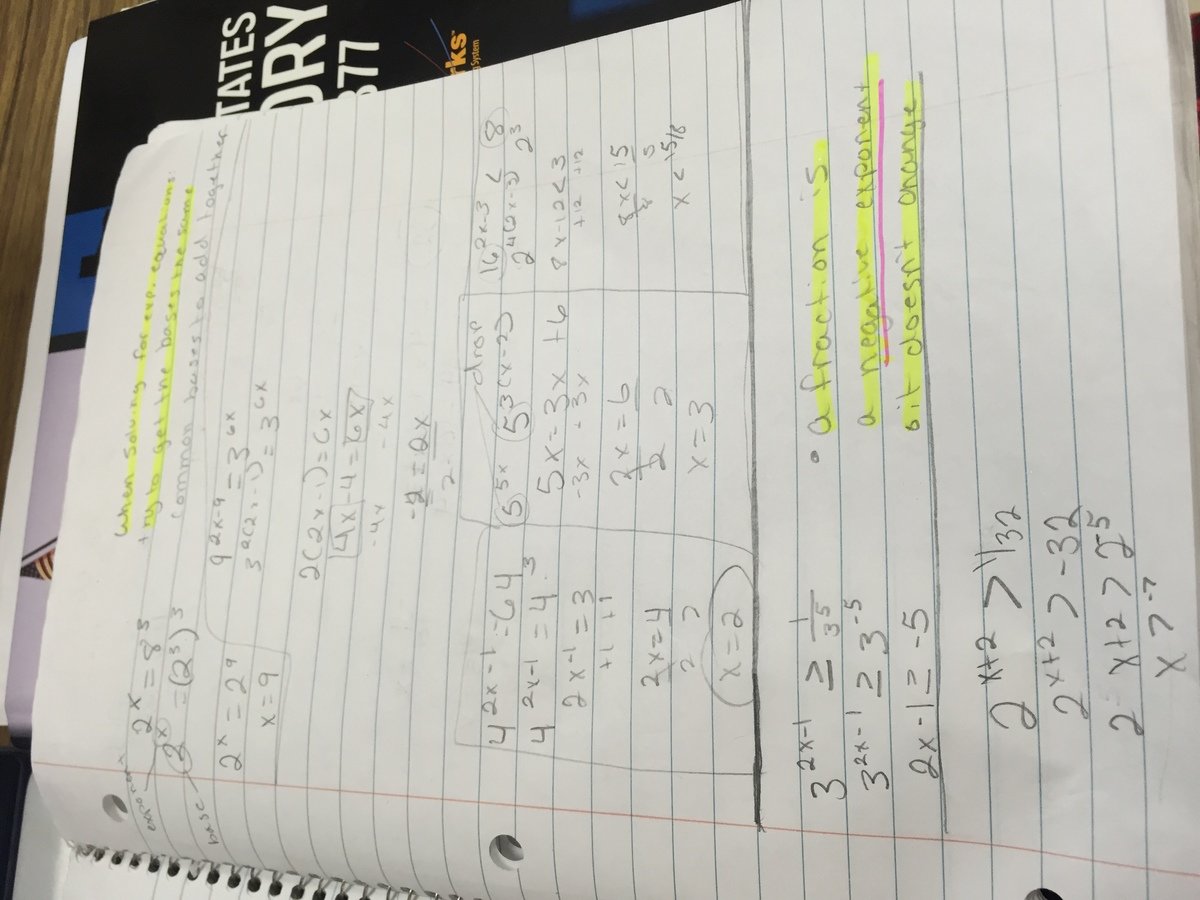 TATES
ORY
877
rks™
System
when solving for exp. equations:
try to get the bases the same
common bases to add together
exponent
2ˣ = 8³
base
2ˣ = (2³)³
2ˣ = 2⁹
x = 9
9²ˣ⁻⁹ = 3⁶ˣ
3²⁽²ˣ⁻¹⁾ = 3⁶ˣ
2(2x-1) = 6x
4x-4 = 6x
-4x -4x
2
4²ˣ⁻¹ = 64
4²ˣ⁻¹ = 4³
2x-1 = 3
+1 +1
2x = 4
2 2
x = 2
drop
5⁵ˣ 5³⁽ˣ⁻²⁾
5x = 3x + 6
-3x - 3x
2x = 6
2 2
x = 3
16²ˣ⁻³ < 8
2⁴⁽²ˣ⁻³⁾ 2³
8x-12 < 3
+12 +12
8x < 15
8
x < 15/8
3²ˣ⁻¹ ≥ 1/3⁵
3²ˣ⁻¹ ≥ 3⁻⁵
2x-1 ≥ -5
• a fraction is
a negative exponent
sit doesn't change
2ˣ⁺² > 1/32
2ˣ⁺² > -32
2 x+2 > 2⁵
x > -7